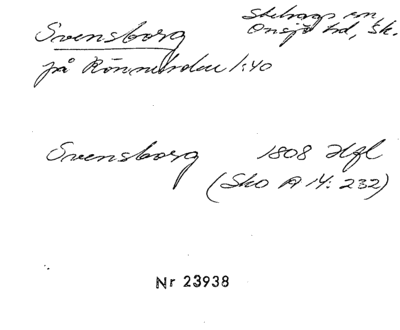 Svensborg
Skeboga sn
Onsjö hd, Sk.
på Rönneholm 1:40
Svensborg 1808 Hfl
(Sko A 14: 232)
Nr 23938